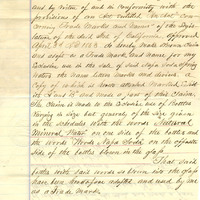 and by virtue of and in conformity with the
provisions of an Act entitled "An Act con-
cerning Trade Marks and Names" of the Legis-
lature of the said State of California approved
April 3d 1863 do hereby claim
and adopt as a Trade Mark and name for my
exclusive use in the sale of said Napa Soda Spring
Water the name letters marks and device. A
Copy of which is hereto attached marked Exhi
bit and made a part of this Claim.
The Claim is made to the Exclusive use of Bottles
varying in size but general of the size given
in the schedule with the words Natural
Mineral Water on one side of the bottle and
the words Napa Soda on the opposite
side of the bottles blown in the glass.
That such
bottles with said words so blown into the glass
have been heretofore adopted and used by me
as a Trade Mark